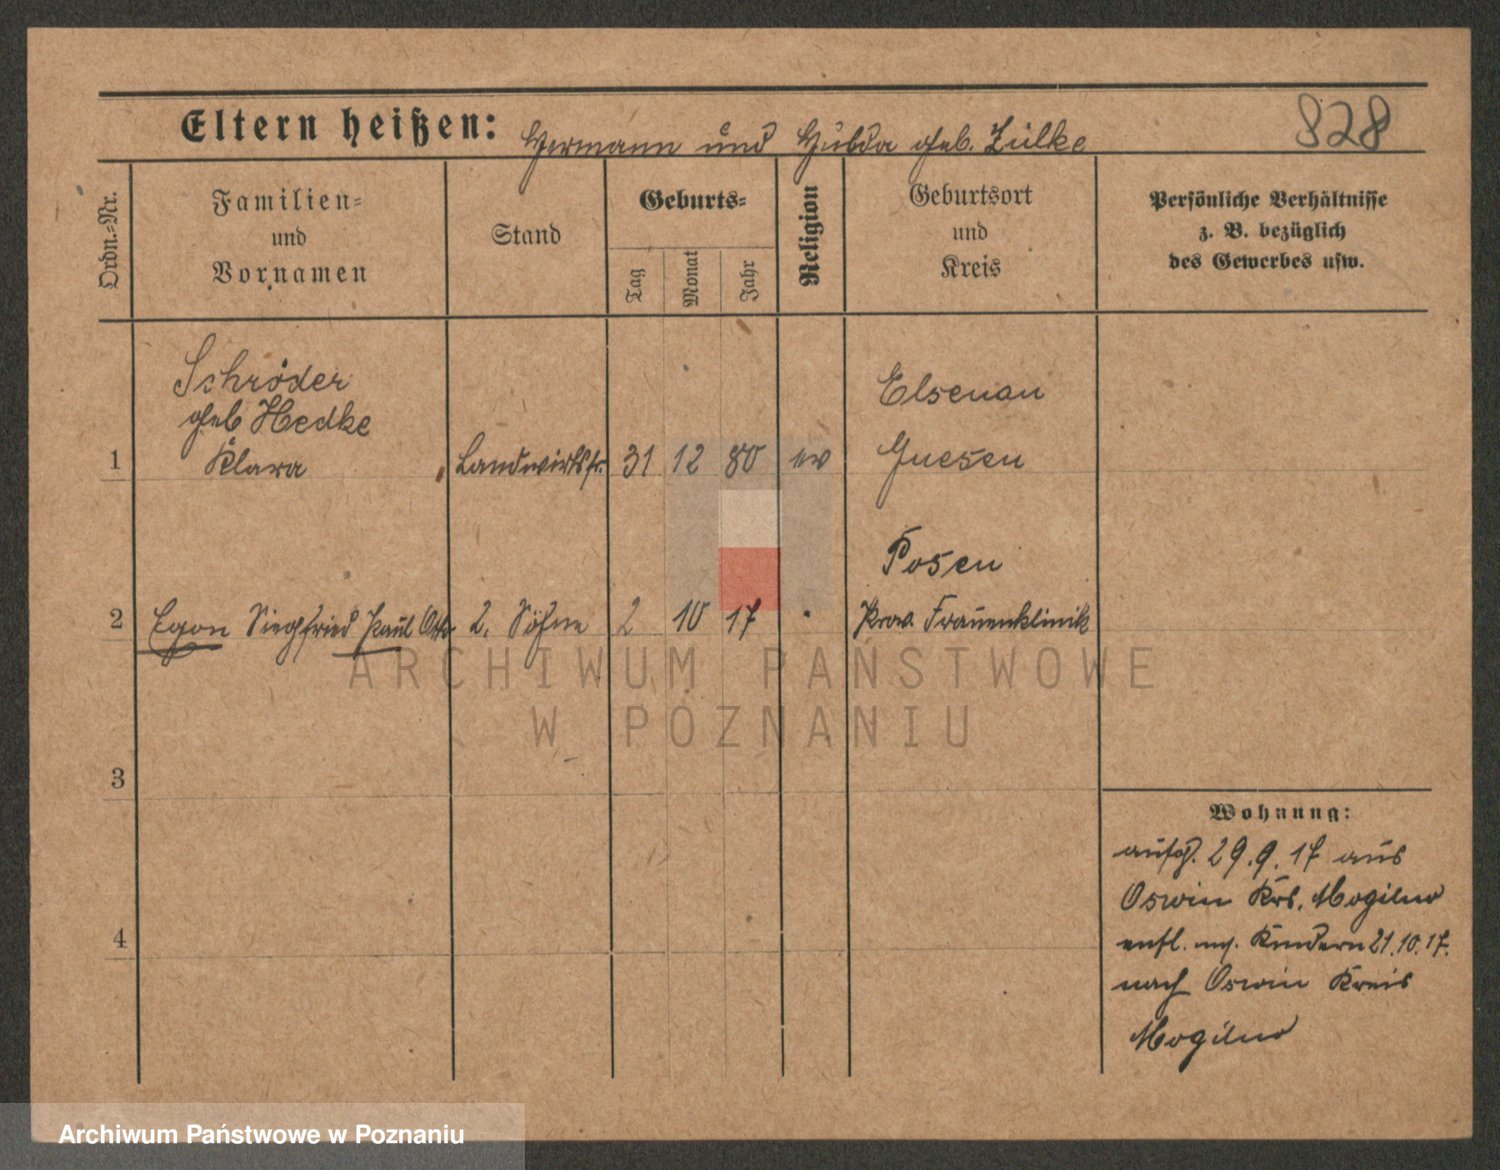 Eltern heißen: Hermann und Hulda geb. Zülke
828
Ordn.-Nr.
Familien-
und
Vornamen
Stand
Geburts-
Tag
Monat
Jahr
Religion
Geburtsort
und
Kreis
Persönliche Verhältnisse
z. B. bezüglich
des Gewerbes usw.
Schröder
geb Hedke
1 Klara Landwirtsfr. 31 12 80 ev
Elsenau
Gnesen
Posen
2 Egon Siegfried Paul Otto 2. Söhne 2 10 17 Prov. Frauenklinik
3
4
Wohnung:
aufg. 29.9.17 aus
Oswin Krs. Mogilno
entl. Kindern 21.10.17.
nach Oswin Kreis
Mogilno
ARCHIWUM PAŃSTWOWE
W POZNANIU
Archiwum Państwowe w Poznaniu